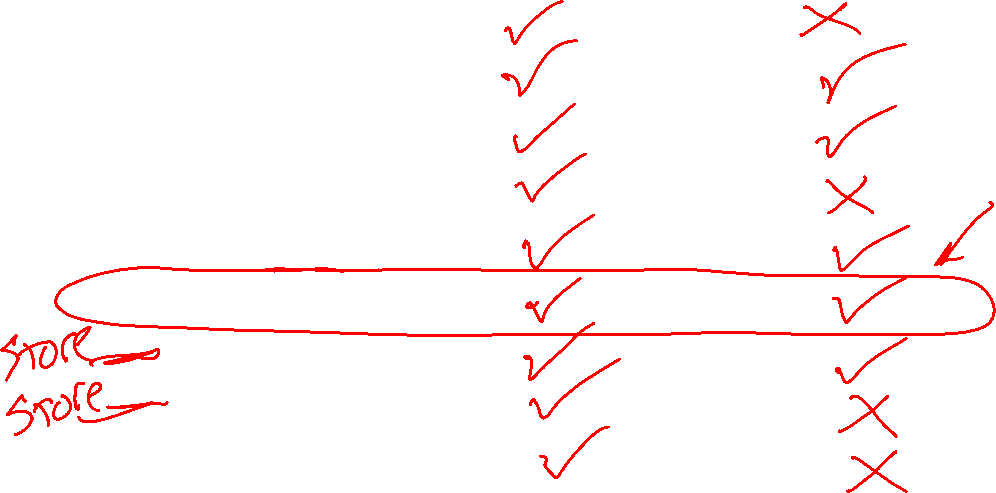 ✓ ✗
✓ ✓
✓ ✓
✓ ✗
✓ ✓
✓ ✓
Store ✓ ✓
Store ✓ ✗
✓ ✗